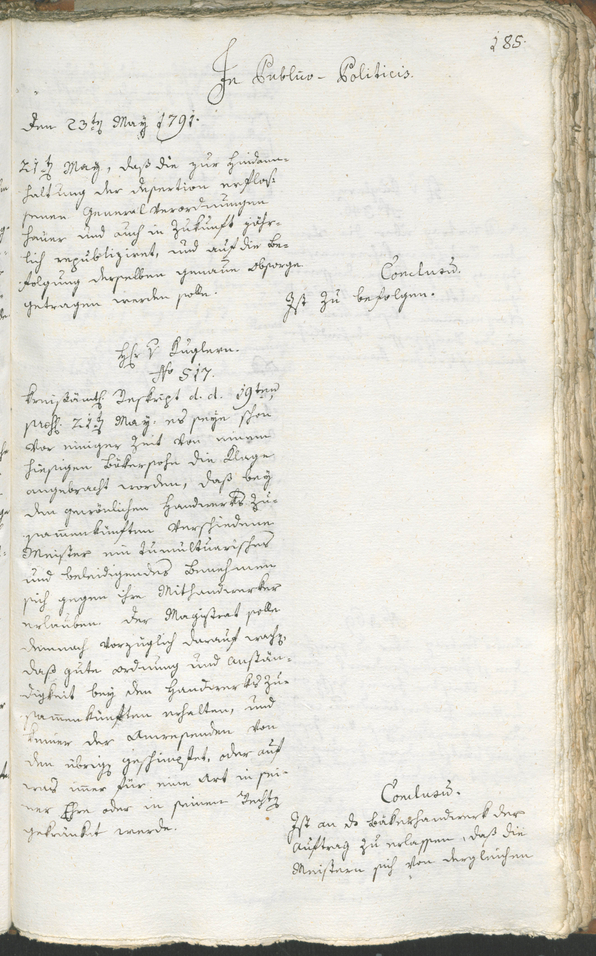 185.
In Publico-Politicis.
Den 23ten May 1791.
21ten May, daß die zur Hindann-
haltung der Desertion erflos-
senen Generalverordnungen
heuer und auch in Zukunft jähr-
lich republiziret, und auf die Be-
folgung derselben genaue Obsorge
getragen werden solle.
Conclusu.
Ist zu befolgen.
H. v. Kuglern.
No 517.
Kreisämtl. Reskript d. d. 19ten
21ten May, es seye schon
vor einiger Zeit von einem
hiesigen Bäkersohn die Klage
angebracht worden, daß bey
den gewönlichen Handwerks Zu-
sammenkünften verschiedene
Meister ein tumultuarisches
und beleidigendes Benehmen
sich gegen ihre Mithandwerker
erlauben. Der Magistrat solle
demnach vorzüglich darauf wachen,
daß gute Ordnung und Anstän-
digkeit bey den Handwerks Zu-
sammenkünften erhalten, und
keiner der Anwesenden von
den übrigen geschimpfet, oder auf
was imer für eine Art in sei-
ner Ehre oder in seinen Rechten
gekränket werde.
Conclusu.
Ist an das Bäkerhandwerk der
Auftrag zu erlassen, daß die
Meistern sich von dergleichen